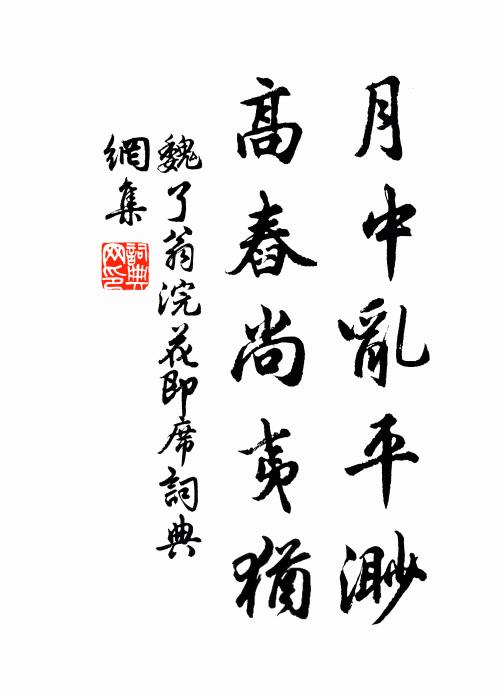 月中亂平渺
高舂尚夷猶
魏了翁浣花即席詞典
網集
詞典
网印